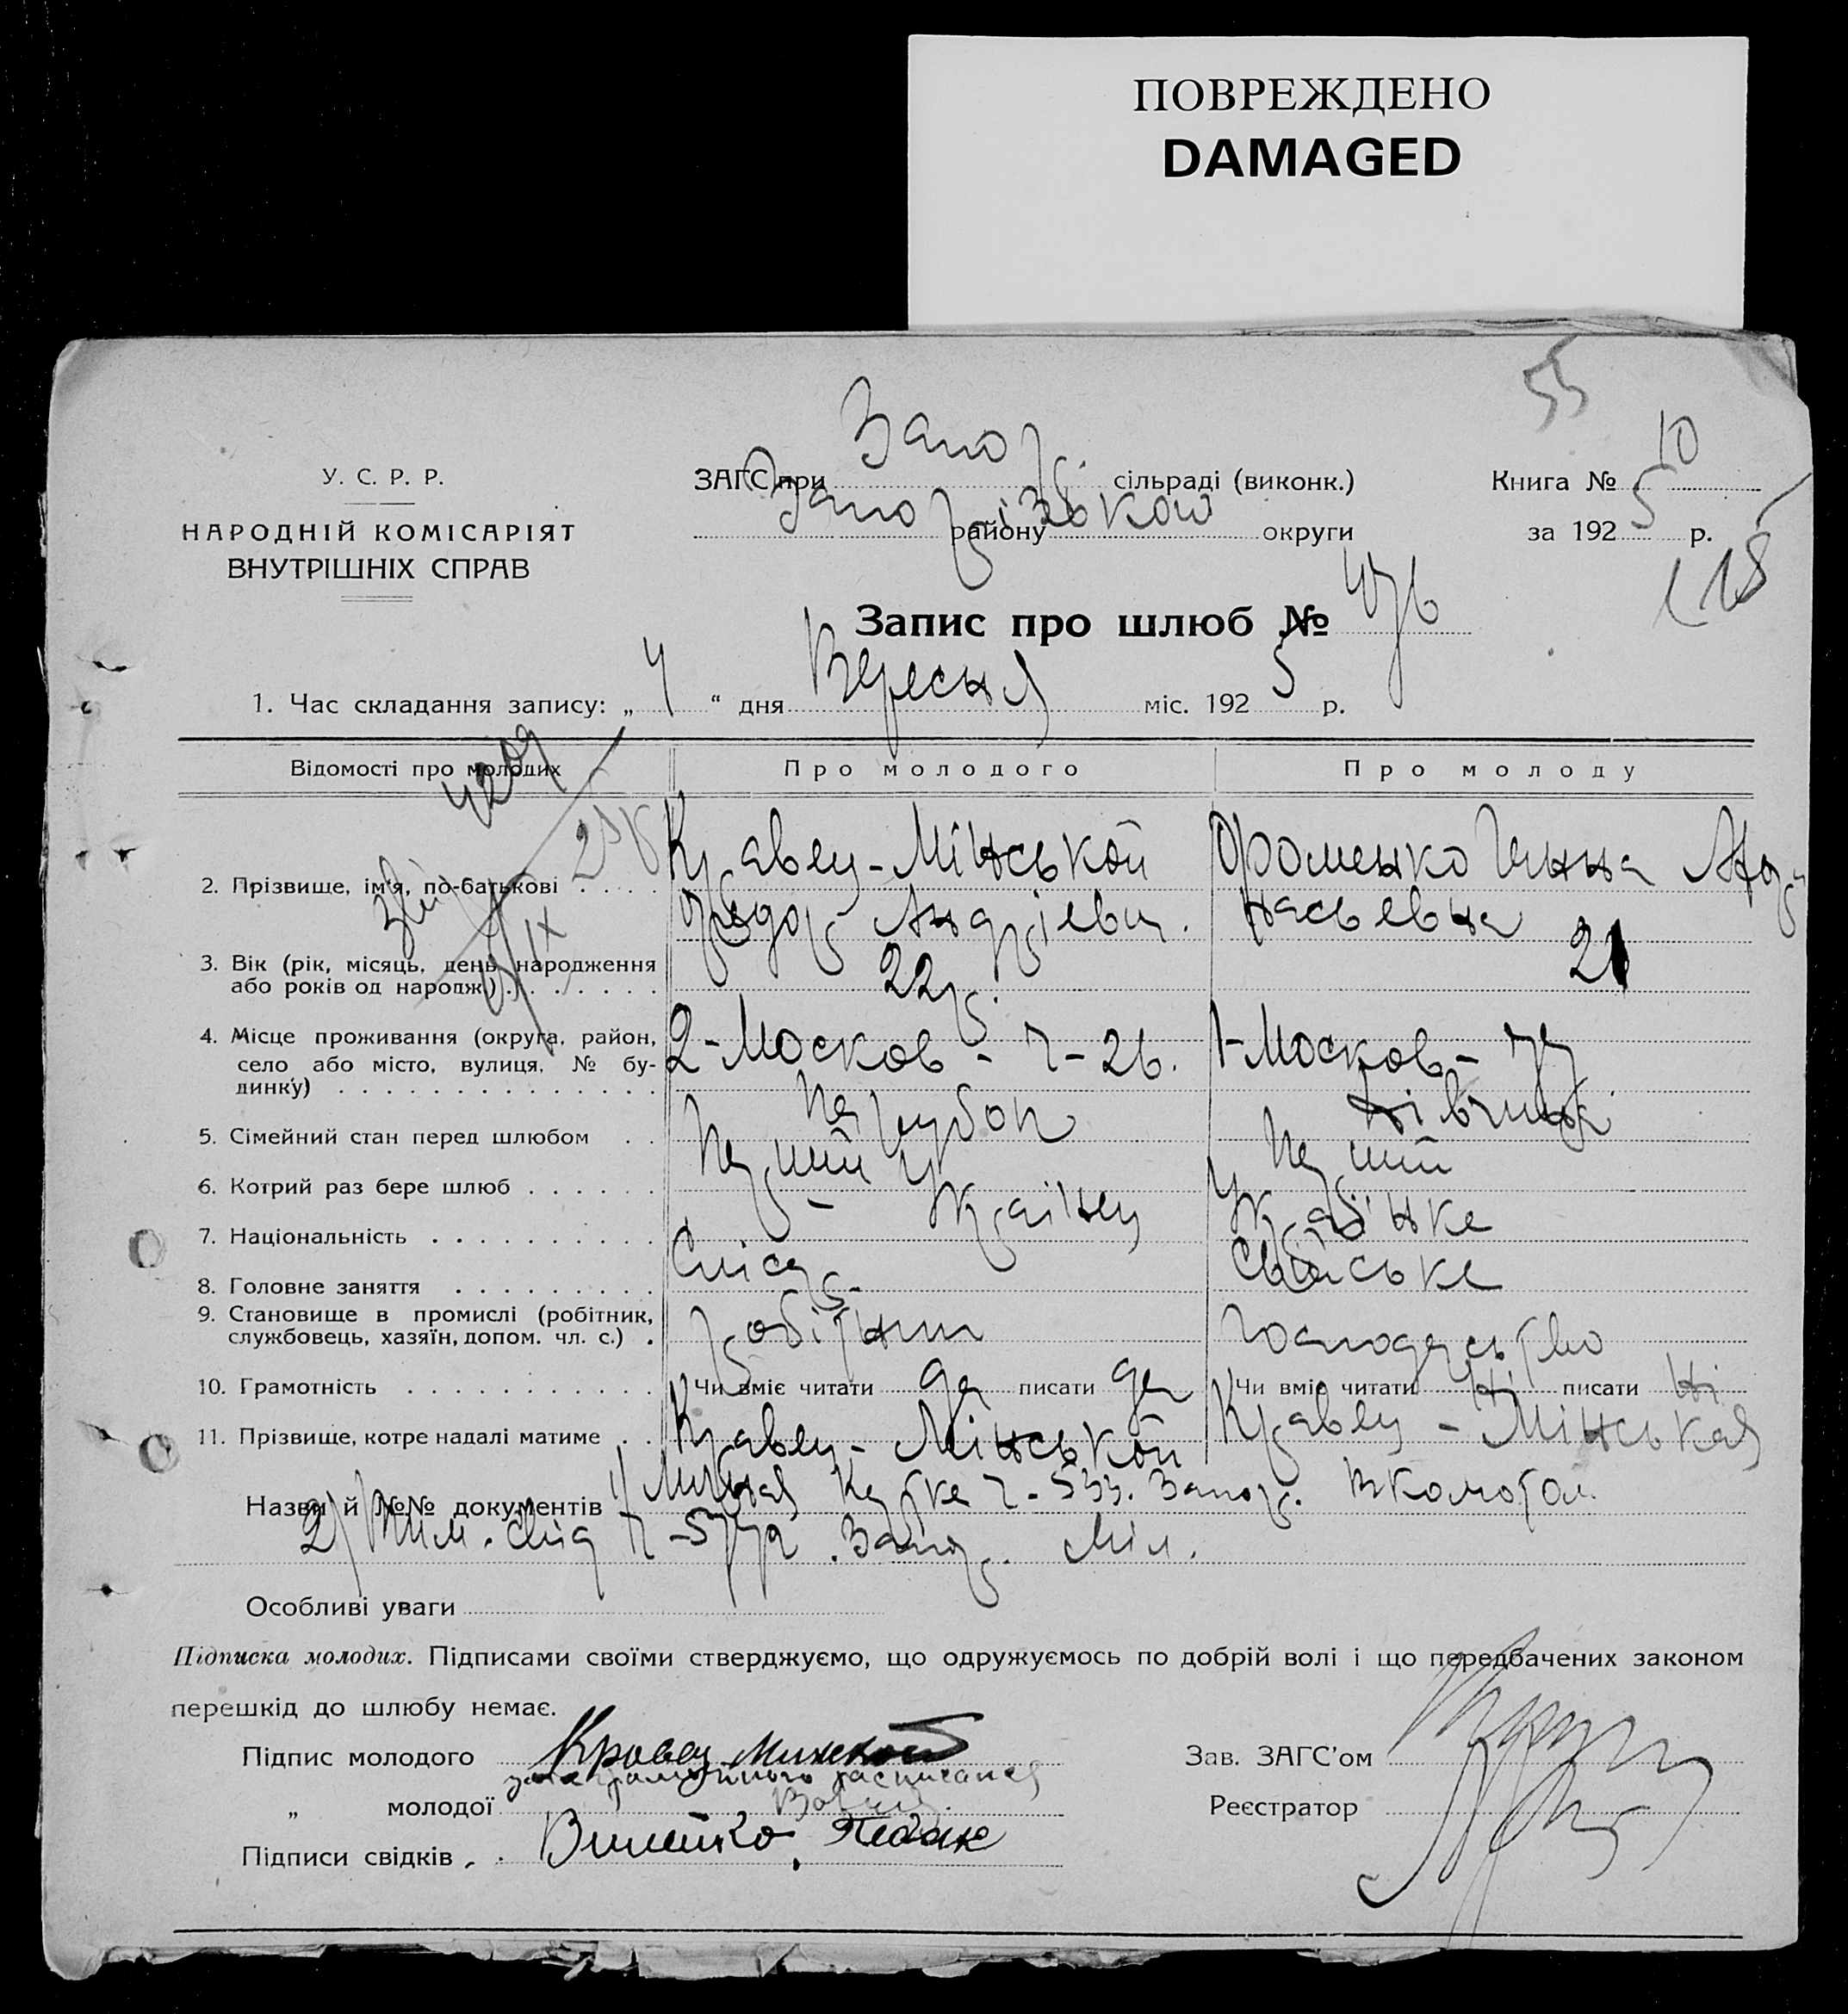 ПОВРЕЖДЕНО
DAMAGED
55
У. С. Р. Р.
НАРОДНІЙ КОМІСАРІЯТ
ВНУТРІШНІХ СПРАВ
ЗАГС при Запор. сільраді (виконк.)
Запорізькой району округи
Книга № 10
за 1925 р.
118
Запис про шлюб № 476
1. Час складання запису: „ 4 “ дня Вересня міс. 1925 р.
Відомості про молодих
Про молодого
Про молоду
2. Прізвище, ім'я, по-батькові . . . .
Кравец-Мінськой
Федор Андріевич.
Фоменко Ганна Афа
насьевна
3. Вік (рік, місяць, день народження
або років од народж.) . . . . . . .
22 р.
21
4. Місце проживання (округа, район,
село або місто, вулиця, № бу-
динку) . . . . . . . . . . . . . .
2-Москов - ч-26.
1-Москов - 77
5. Сімейний стан перед шлюбом . .
Парубок
Дівчина
6. Котрий раз бере шлюб . . . . . .
Перший
Перший
7. Національність . . . . . . . . . .
Українец
Українка
8. Головне заняття . . . . . . . . .
Слісар.
Сільське
9. Становище в промислі (робітник,
службовець, хазяїн, допом. чл. с.) .
робітник
господарство
10. Грамотність . . . . . . . . . . .
Чи вміє читати да писати да
Чи вміє читати ні писати ні
11. Прізвище, котре надалі матиме . .
Кравец-Мінськой
Кравец-Мінськая
Назви й №№ документів 1) Личная Картка ч-533. Запор.
2) Тим. Мід ч-5772 . Запор. Міл.
Особливі уваги
Підписка молодих. Підписами своїми стверджуємо, що одружуємось по добрій волі і що передбачених законом
перешкід до шлюбу немає.
Підпис молодого Кравец Минской
„ молодої
за неграмотного расписался
Підписи свідків . .
Зав. ЗАГС'ом
Реєстратор